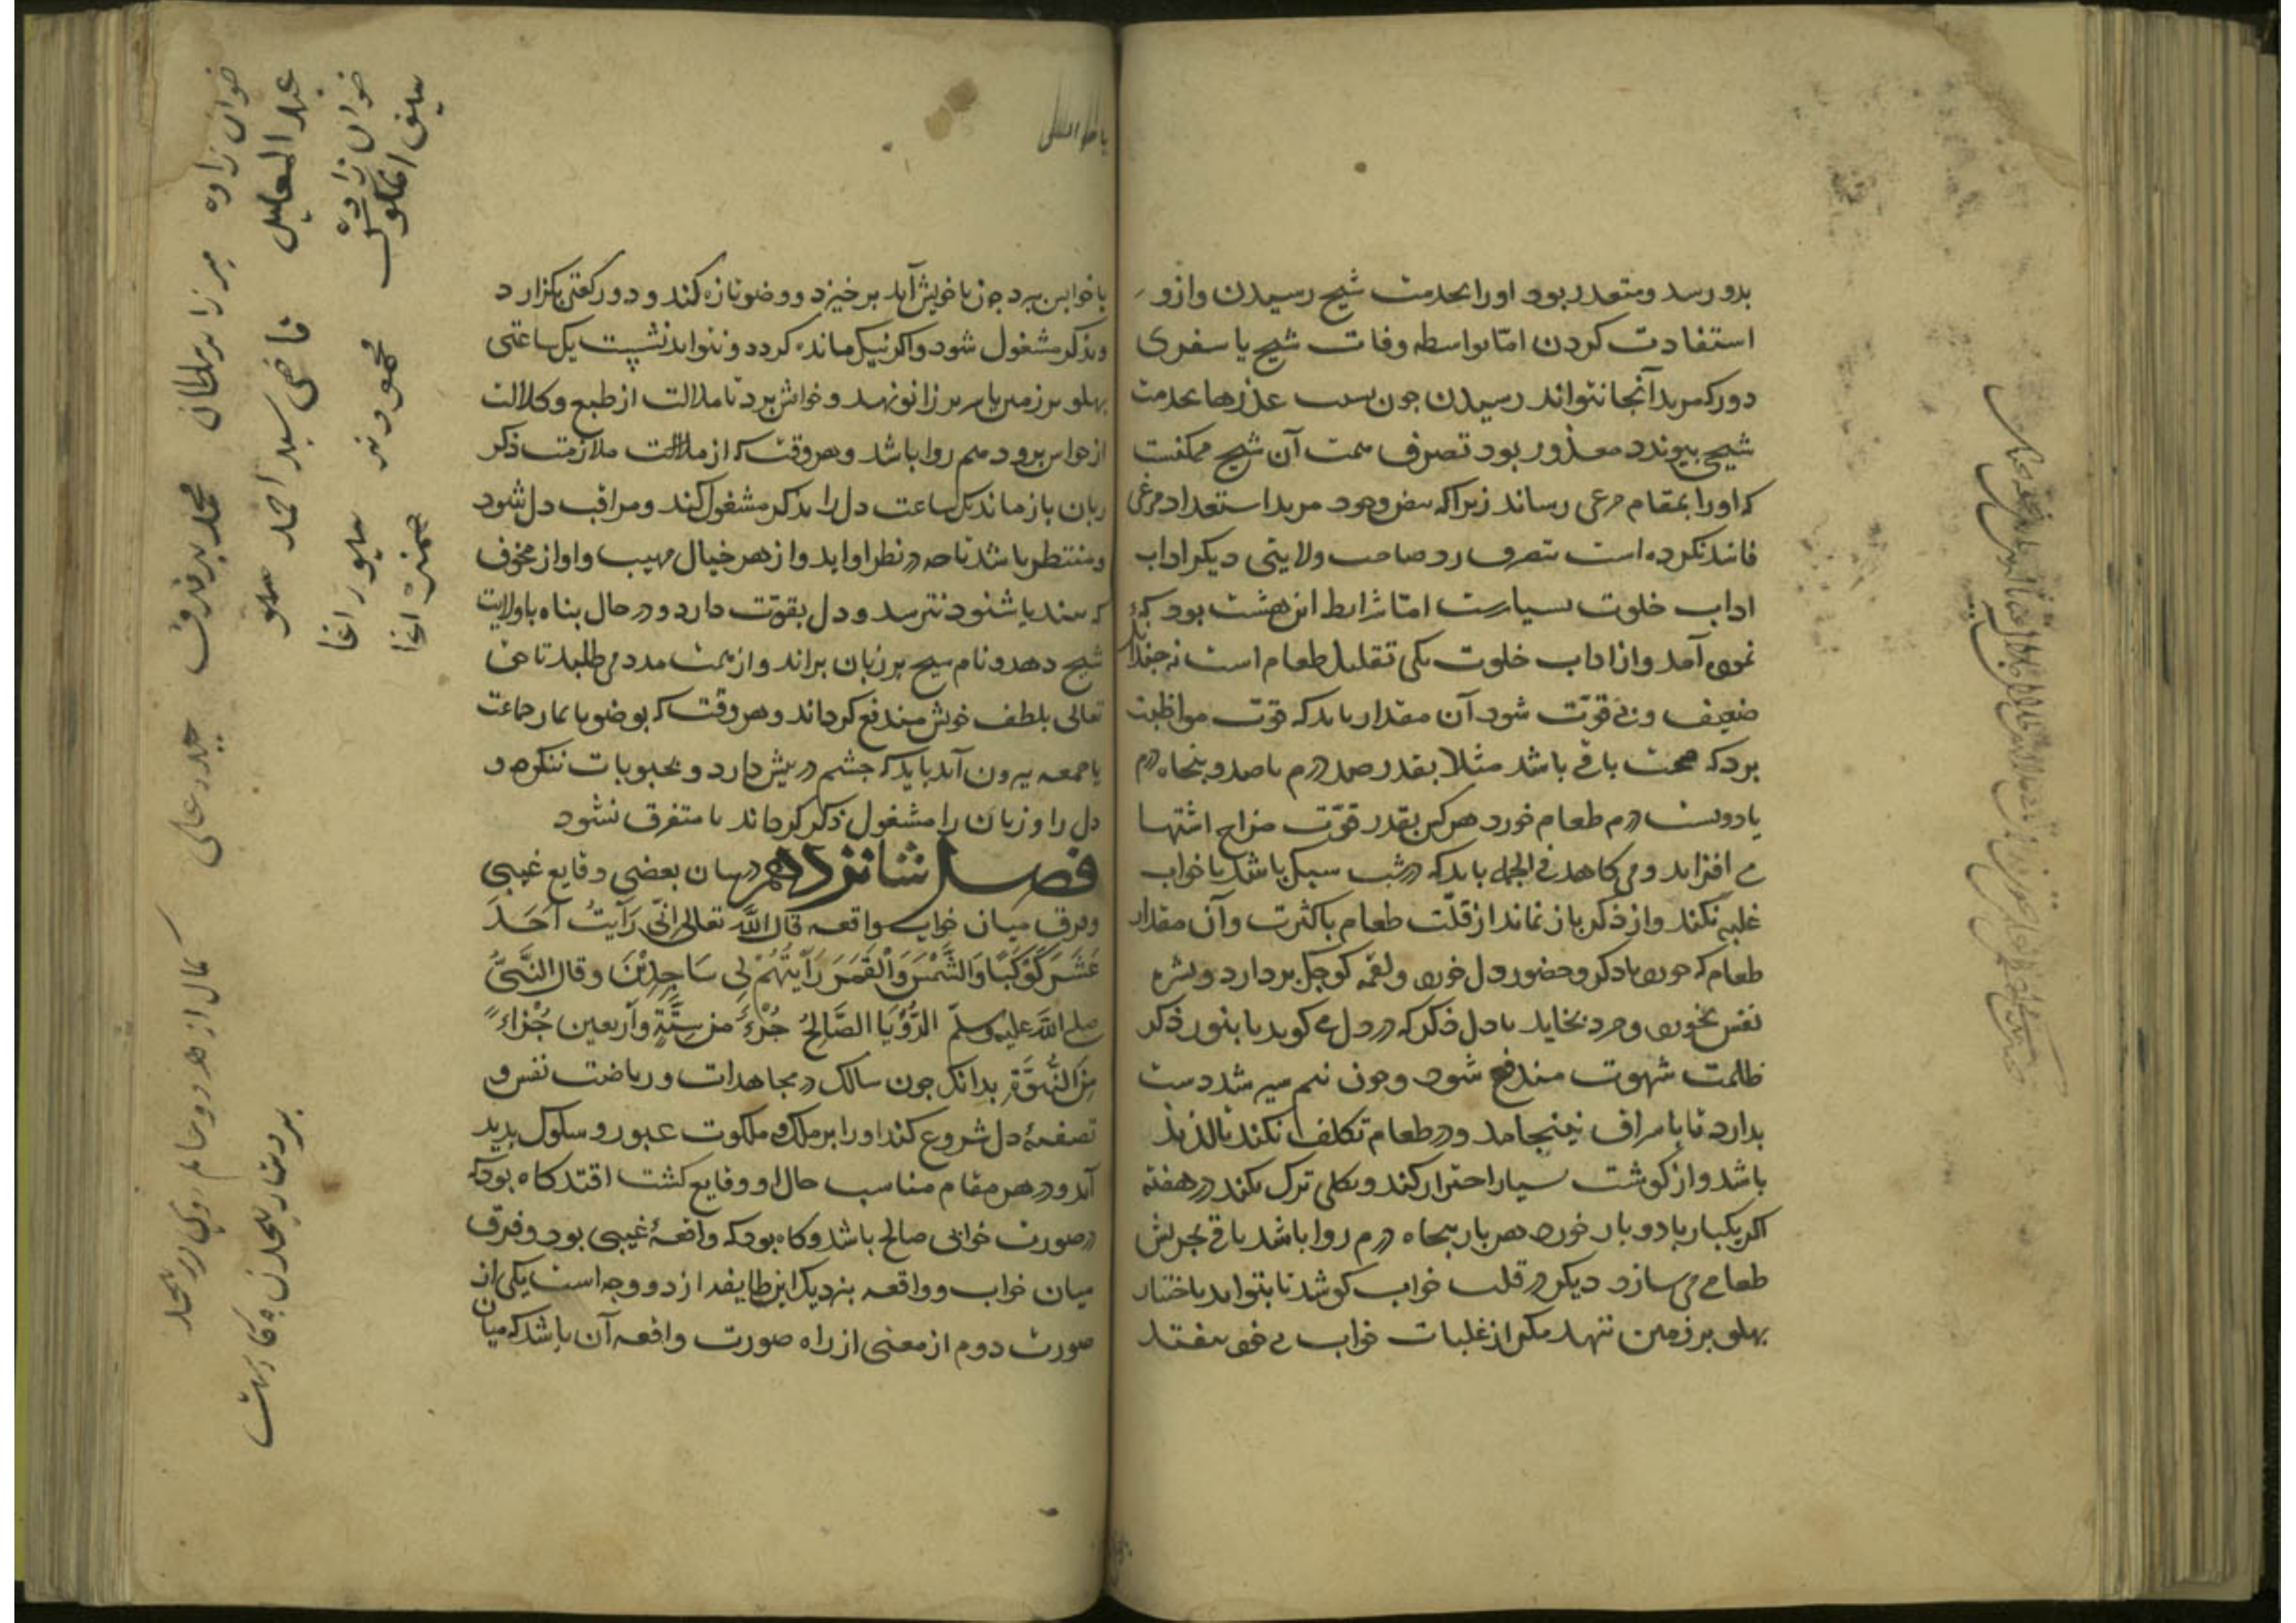 بدو رسد و متعذر بود او را بخدمت شیخ رسیدن و ازو
استفادت کردن اما بواسطه وفات شیخ یا سفری
دور که مرید آنجا نتواند رسیدن جون بسبب عذرها بخدمت
شیخ بیوندد معذور بود تصرف همت آن شیخ ممکنست
که او را بمقام مرغی رساند زیرا که بیض وجود مرید استعداد مرغی
فاسد نکرده است بتصرف صاحب ولایتی دیکر اداب
اداب خلوت بسیارست اما شرایط این هشت بود که
نموده آمد و از اداب خلوت یکی تقلیل طعام است نه جندان
ضعیف و بی قوت شود آن مقدار باید که قوت مواظبت
برد که صحت باقی باشد مثلا بقدر صد درم یا صد و بنجاه درم
یا دویست درم طعام خورد هر کس بقدر قوت مزاج اشتها
می افزاید و می کاهد فی الجمله باید که در شب سبک باشد تا خواب
غلبه نکند و از ذکر باز نماند از قلت طعام یا کثرت و آن مقدار
طعام که خورد با ذکر و حضور دل خورد و لقمه کوجک بردارد و بشره
نفس نخورد و خرد بخاید با دل ذکر که در دل می کوید تا بنور ذکر
ظلمت شهوت مندفع شود و جون نیم سیر شد دست
بدارد تا باسراف نینجامد و در طعام تکلف نکند تا لذیذ
باشد و از کوشت بسیار احتراز کند و بکلی ترک نکند در هفته
اکر یکبار یا دو بار خورد هر بار بنجاه درم روا باشد باقی بجربش
طعامی می سازد دیکر در قلت خواب کوشد تا بتواند باختیار
بهلو بر زمین ننهد مکر از غلبات خواب بی خود بیفتد
یا خوابش ببرد جون با خویش آید بر خیزد و وضو تازه کند و دو رکعتی بکزارد
و بذکر مشغول شود و اکر نیک مانده کردد و نتواند نشست یک ساعتی
بهلو بر زمین یا سر بر زانو نهد و خوابش برد تا ملالت از طبع و کلالت
از حواس برود هم روا باشد و هر وقت که از ملالت ملازمت ذکر
زبان باز ماند یک ساعت دل را بذکر مشغول کند و مراقب دل شود
و منتظر باشد تا چه در نظر او آید و از هر خیال مهیب و اواز مخوف
که بیند یا شنود نترسد و دل بقوت دارد و در حال بناه با ولایت
شیخ دهد و نام شیخ بر زبان براند و از همت مدد می طلبد تا حق
تعالی بلطف خویش مندفع کرداند و هر وقت که بوضو یا نماز جماعت
یا جمعه بیرون آید باید که جشم در بیش دارد و بمحبوبات ننکرد و
دل را و زبان را مشغول ذکر کرداند تا متفرق نشود
فصل شانزدهم در بیان بعضی وقایع غیبی
و فرق میان خواب و واقعه قال الله تعالی اِنّی رَاَیتُ اَحَدَ
عَشَرَ کَوْکَبًا وَالشَّمْسَ وَالْقَمَرَ رَاَیتُهُمْ لِی سَاجِدِیْنَ و قال النَّبیُّ
صلی الله علیه وسلم الرُّؤْیَا الصَّالِحُ جُزْءٌ مِن سِتَّةٍ وَاَربعین جُزْاءً
مِنَ النُّبُوَّةِ بدانک جون سالک در مجاهدات و ریاضت نفس و
تصفیهٔ دل شروع کند او را بر ملک و ملکوت عبور و سلوک بدید
آید و در هر مقام مناسب حال او وقایع کشف افتد کاه بود که
در صورت خوابی صالح باشد و کاه بود که واقعهٔ غیبی بود و فرق
میان خواب و واقعه بنزدیک این طایفه از دو وجه است یکی از
صورت دوم از معنی از راه صورت واقعه آن باشد که میان
خوان زاده میرزا بدر سلطان محمد حیدر علی
قاضی سید احمد
محمود